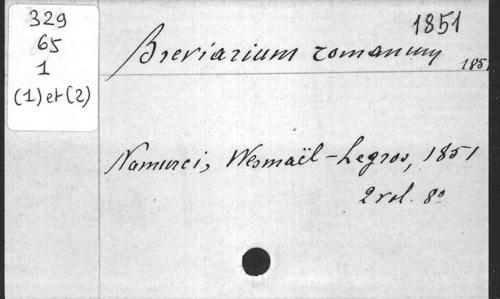 329
65
1
(1) et (2)
1851
Breviarium romanum
1851
Namurci, Wesmaël-Legros, 1851
2 vol. 8º